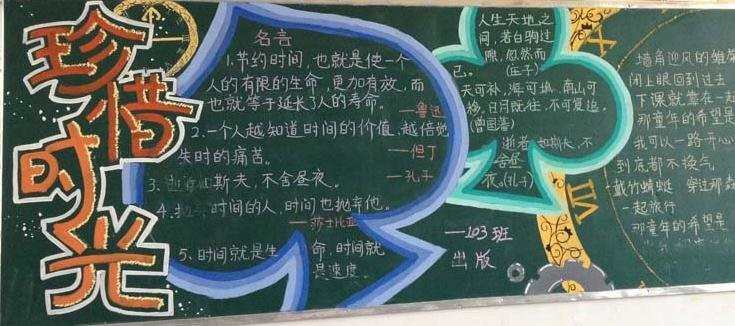 珍惜时光
名言
1.节约时间,也就是使一个
人的有限的生命,更加有效,而
也就等于延长了人的寿命。
—鲁迅
2.一个人越知道时间的价值,越倍觉
失时的痛苦。
—但丁
3.斯夫,不舍昼夜。
—孔子
4.时间的人,时间也抛弃他。
—莎士比亚
5、时间就是生命,时间就
是速度。
人生天地之
间,若白驹过
隙,忽然而
已。(庄子)
天可补,海可填,南山可
移,日月既往,不可复追。
(曾国藩)
逝者如斯夫,不
舍昼
夜。(孔子)
—103班
出版
VII
墙角迎风的雏菊
闭上眼回到过去
下课就靠在一起
那童年的希望是
我可以一路开心
到底都不换气
戴竹蜻蜓 穿过那森
一起旅行
那童年的希望是